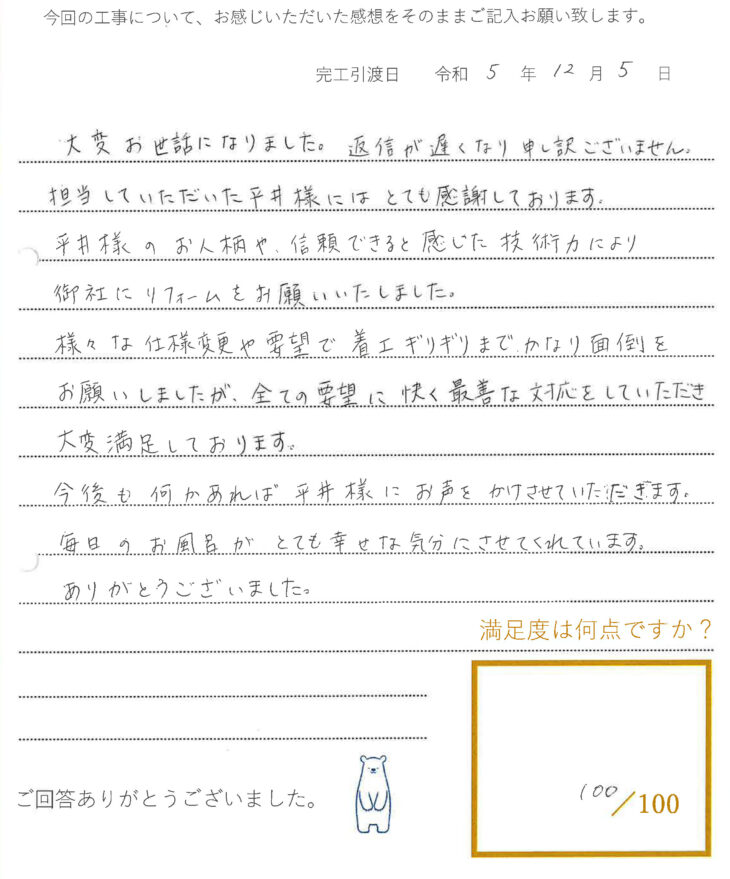 今回の工事について、お感じいただいた感想をそのままご記入お願い致します。
完工引渡日 令和 5 年 12 月 5 日
大変お世話になりました。返信が遅くなり申し訳ございません。
担当していただいた平井様にはとても感謝しております。
平井様のお人柄や、信頼できると感じた技術力により
御社にリフォームをお願いいたしました。
様々な仕様変更や要望で着工ギリギリまでかなり面倒を
お願いしましたが、全ての要望に快く最善な対応をしていただき
大変満足しております。
今後も何かあれば平井様にお声をかけさせていただきます。
毎日のお風呂がとても幸せな気分にさせてくれています。
ありがとうございました。
満足度は何点ですか？
100/100
ご回答ありがとうございました。